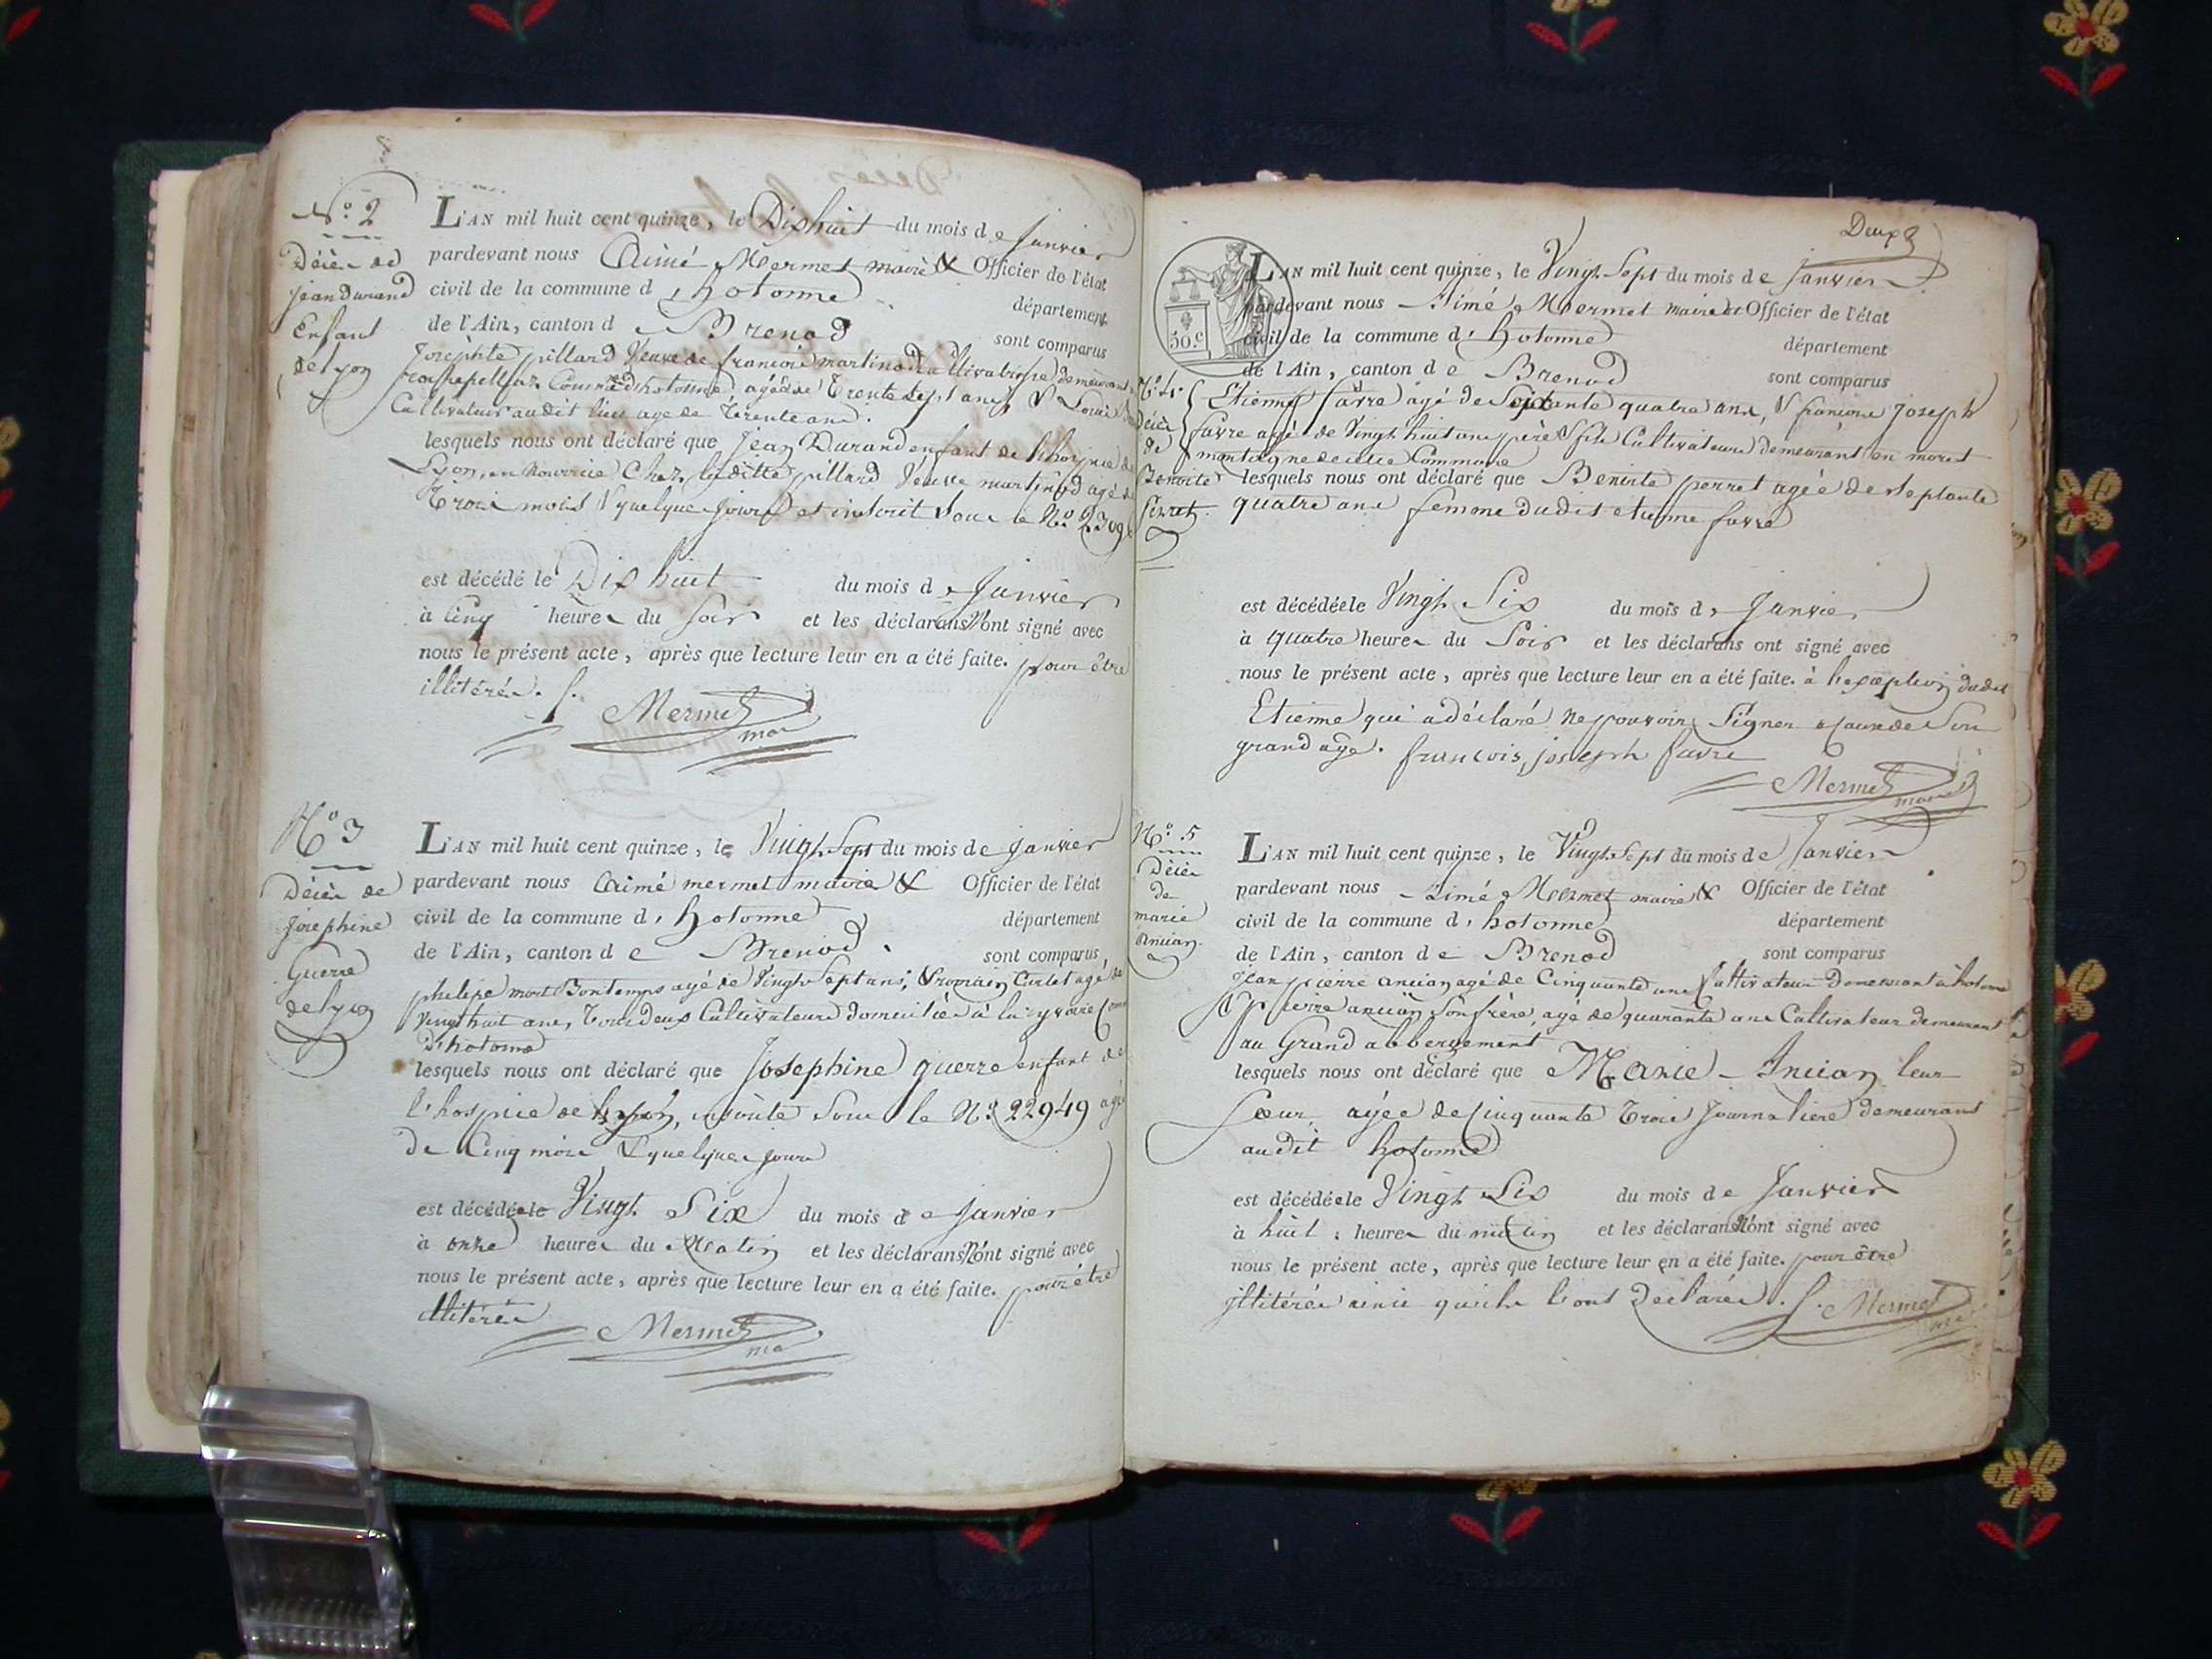 N.o 2
Décès de
Jean Durand
Enfant
de Lyon
L'AN mil huit cent quinze, le Dixhuit du mois de Janvier
pardevant nous Aimé Mermet maire & Officier de l'état
civil de la commune d'hotonne département
de l'Ain, canton de Brenod sont comparus
Josephte pillard Veuve de françois martinod Cultivatrice demeurant
Commune d'hotonne agée de Trente Sept ans, & Louis
Cultivateur audit lieu age de Trente ans.
lesquels nous ont déclaré que Jean Durand enfant de l'hospice de
Lyon, en nourrice Chez laditte pillard Veuve martinod agé de
Trois mois & quelques jours et inscrit sous le N.o 2309
est décédé le Dix huit du mois de Janvier
à cinq heures du soir et les déclarans N'ont signé avec
nous le présent acte, après que lecture leur en a été faite. pour être
illitérés.
Mermet
N.o 3
Décès de
Josephine
Guerre
de Lyon
L'AN mil huit cent quinze, le Vingt Sept du mois de Janvier
pardevant nous Aimé mermet maire & Officier de l'état
civil de la commune d'hotonne département
de l'Ain, canton de Brenod. sont comparus
philipe mort Bontemps agé de Vingt Sept ans, & romain Carlet agé de
Vingt huit ans, Tous deux Cultivateurs domiciliés à la yvoire Com
D'hotonne
lesquels nous ont déclaré que Josephine guerre enfant de
l'hospice de Lyon, inscrite Sous le N.o 22949 agé
de Cinq mois & quelques jours
est décédée le Vingt Six du mois de Janvier
à onze heures du Matin et les déclarans N'ont signé avec
nous le présent acte, après que lecture leur en a été faite. pour être
illitérés
Mermet
Deux
30.c
N.o 4.
Décès
de
Benoite
Perret
L'AN mil huit cent quinze, le Vingt Sept du mois de Janvier
pardevant nous Aimé Mermet maire et Officier de l'état
civil de la commune d'hotonne département
de l'Ain, canton de Brenod sont comparus
Etienne favre agé de Septante quatre ans, & françois Joseph
favre agé de Vingt huit ans père & fils Cultivateurs demeurant en moret
montagne de cette Commune
lesquels nous ont déclaré que Benoite perret agée de Septante
quatre ans femme dudit etienne favre
est décédée le Vingt Six du mois de Janvier
à quatre heures du Soir et les déclarans ont signé avec
nous le présent acte, après que lecture leur en a été faite. à l'exception dudit
Etienne qui a déclaré ne pouvoir Signer a cause de Son
grand age. francois joseph favre
Mermet
maire
N.o 5
Décès
de
marie
Ancian.
L'AN mil huit cent quinze, le Vingt Sept du mois de Janvier
pardevant nous Aimé Mermet maire & Officier de l'état
civil de la commune d'hotonne département
de l'Ain, canton de Brenod sont comparus
Jean pierre ancian agé de Cinquante ans Cultivateur Demeurant à hotonne
& pierre ancian Son frère, agé de quarante ans Cultivateur demeurant
au Grand abbergement
lesquels nous ont déclaré que Marie Ancian leur
Sœur, agée de Cinquante Trois Journaliere demeurant
audit hotonne
est décédée le Vingt Six du mois de Janvier
à huit heures du matin et les déclarans N'ont signé avec
nous le présent acte, après que lecture leur en a été faite. pour être
jllitérés ainsi quils l'ont Declarés.
Mermet